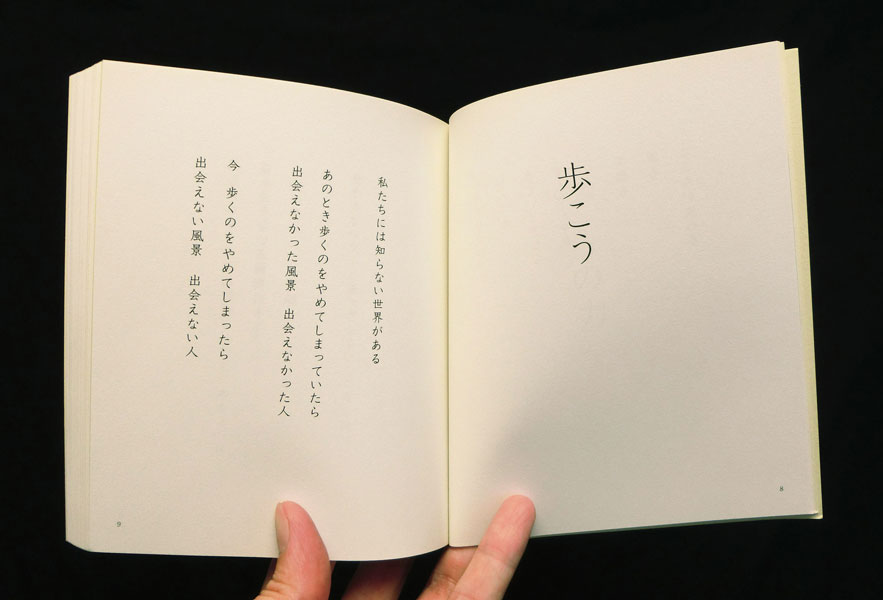 歩こう
8
私たちには知らない世界がある
あのとき歩くのをやめてしまっていたら
出会えなかった風景　出会えなかった人
今　歩くのをやめてしまったら
出会えない風景　出会えない人
9